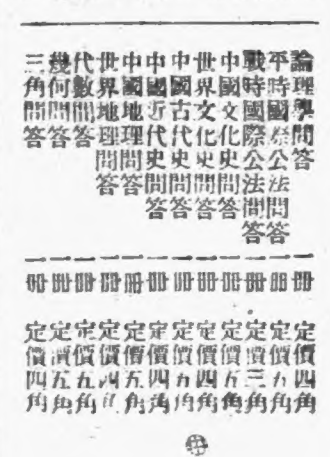 論理學問答 一冊 定價四角
平時國際公法問答 一冊 定價五角
戰時國際公法問答 一冊 定價三角
中國文化史問答 一冊 定價五角
世界文化史問答 一冊 定價四角
中國古代史問答 一冊 定價五角
中國近代史問答 一冊 定價四角
中國地理問答 一冊 定價五角
世界地理問答 一冊 定價四角
代數問答 一冊 定價五角
幾何問答 一冊 定價五角
三角問答 一冊 定價四角